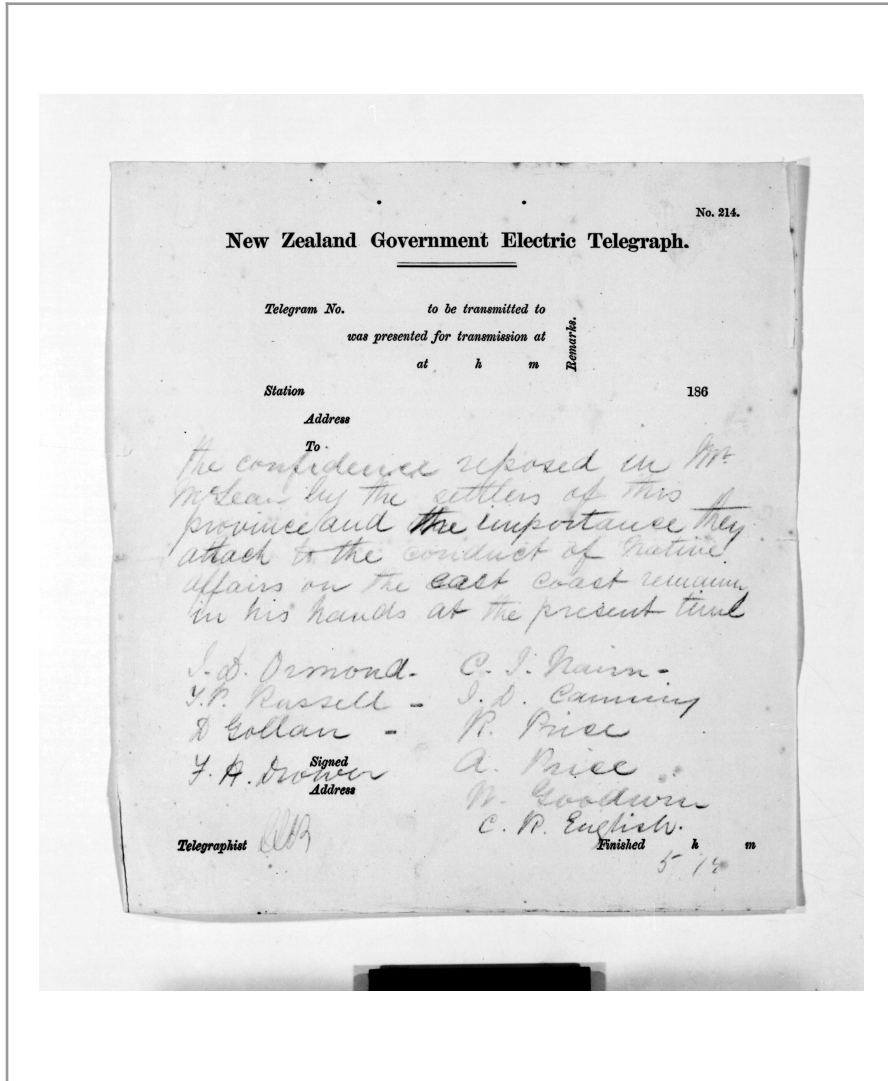 No. 214.
New Zealand Government Electric Telegraph.
Telegram No. to be transmitted to
was presented for transmission at
at h m
Remarks.
Station 186
Address
To
the confidence reposed in Mr
McLean by the settlers of this
province and the importance they
attach to the conduct of Native
affairs on the east coast
in his hands at the present time
J. D. Ormond - C. J. Nairn -
Russell - J. D. Canning
D Gollan - R. Price
Signed
F. H. Drower A. Price
Address
W. Goodwin
C. R. English.
Telegraphist Finished h m
5